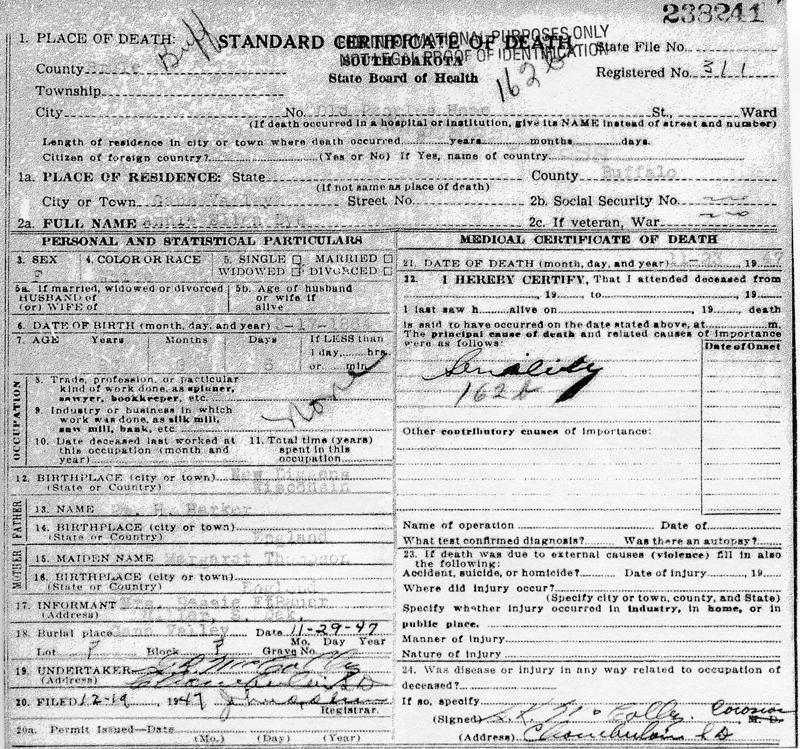 238241
1. PLACE OF DEATH: Buff STANDARD CERTIFICATE OF DEATH State File No.
FOR INFORMATIONAL PURPOSES ONLY
NOT LEGAL PROOF OF IDENTIFICATION
County SOUTH DAKOTA Registered No. 311
Township State Board of Health 162b
City No. Old Peoples Home St., Ward
(If death occurred in a hospital or institution, give its NAME instead of street and number)
Length of residence in city or town where death occurred years months days.
Citizen of foreign country? (Yes or No) If Yes, name of country
1a. PLACE OF RESIDENCE: State County Buffalo
(If not same as place of death)
City or Town Gann Valley Street No. 2b. Social Security No. no
2a. FULL NAME Annie Ellen Dye 2c. If veteran, War no
PERSONAL AND STATISTICAL PARTICULARS
3. SEX 4. COLOR OR RACE 5. SINGLE MARRIED
F WIDOWED DIVORCED
5a. If married, widowed or divorced 5b. Age of husband
HUSBAND of or wife if
(or) WIFE of alive
6. DATE OF BIRTH (month, day, and year)
7. AGE Years Months Days If LESS than
1 day, hrs.
or min.
OCCUPATION
8. Trade, profession, or particular
kind of work done, as spinner,
sawyer, bookkeeper, etc.
9. Industry or business in which
work was done, as silk mill,
saw mill, bank, etc.
none
10. Date deceased last worked at 11. Total time (years)
this occupation (month and spent in this
year) occupation
12. BIRTHPLACE (city or town) New Diggens
(State or Country) Wisconsin
FATHER
13. NAME H. Barker
14. BIRTHPLACE (city or town)
(State or Country) England
MOTHER
15. MAIDEN NAME Margaret Thompson
16. BIRTHPLACE (city or town)
(State or Country) England
17. INFORMANT Mrs.
(Address) S. Dak.
18. Burial place Gann Valley Date 11-29-47
Mo. Day Year
Lot ? Block ? Grave No.
19. UNDERTAKER S K McColley
(Address) Chamberlain S D
20. FILED 12-19 1947
Registrar.
20a. Permit Issued—Date
(Mo.) (Day) (Year)
MEDICAL CERTIFICATE OF DEATH
21. DATE OF DEATH (month, day, and year) 19 47
22. I HEREBY CERTIFY, That I attended deceased from
, 19 to , 19
I last saw h alive on , 19 , death
is said to have occurred on the date stated above, at m.
The principal cause of death and related causes of importance
were as follows: Date of Onset
Senility
162b
Other contributory causes of importance:
Name of operation Date of
What test confirmed diagnosis? Was there an autopsy?
23. If death was due to external causes (violence) fill in also
the following:
Accident, suicide, or homicide? Date of injury , 19
Where did injury occur?
(Specify city or town, county, and State)
Specify whether injury occurred in industry, in home, or in
public place.
Manner of injury
Nature of injury
24. Was disease or injury in any way related to occupation of
deceased?
If so, specify
(Signed) S. K. McColley. Coroner M. D.
(Address) Chamberlain S D